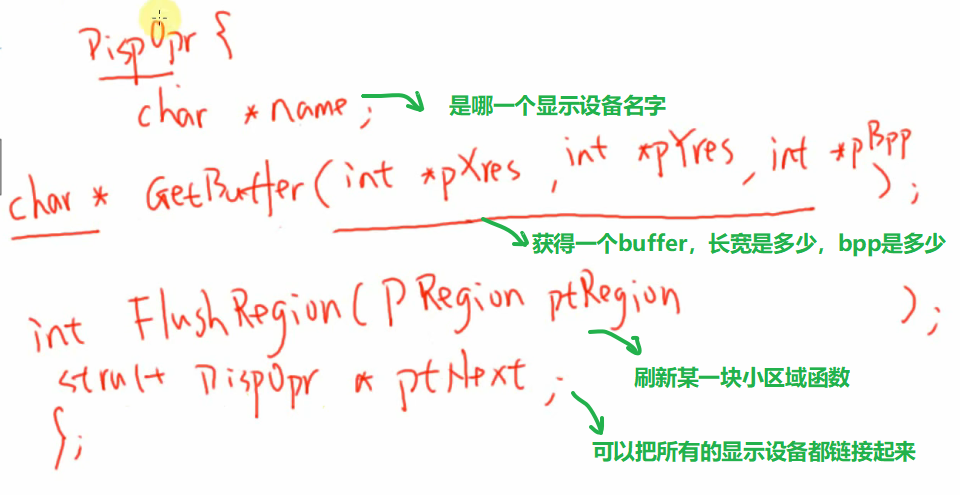 DispOpr {
char *name; 是哪一个显示设备名字
char * GetBuffer(int *pXres, int *pYres, int *pBpp);
获得一个buffer，长宽是多少，bpp是多少
int FlushRegion(PRegion ptRegion );
刷新某一块小区域函数
struct DispOpr * ptNext;
};
可以把所有的显示设备都链接起来